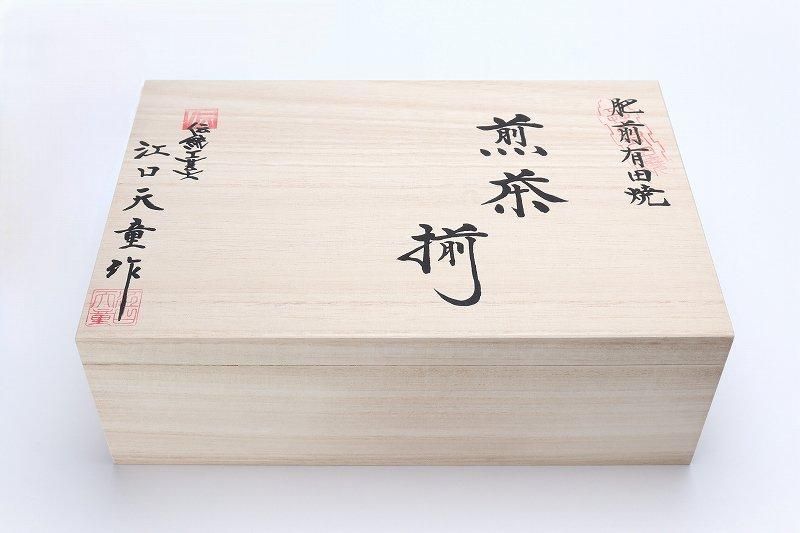 肥前有田焼
煎茶
揃
伝統工芸士
江口天童作